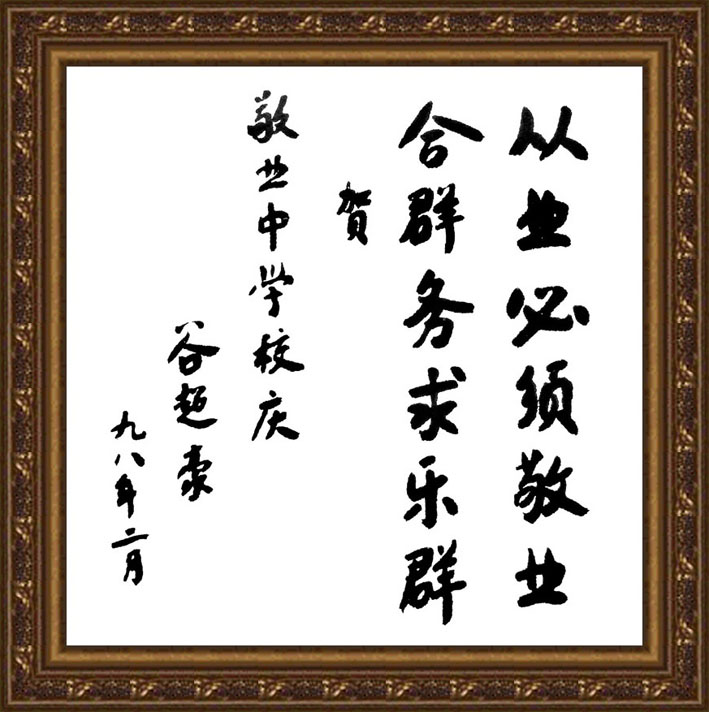 从业必须敬业
合群务求乐群
贺
敬业中学校庆
谷超豪
九八年二月